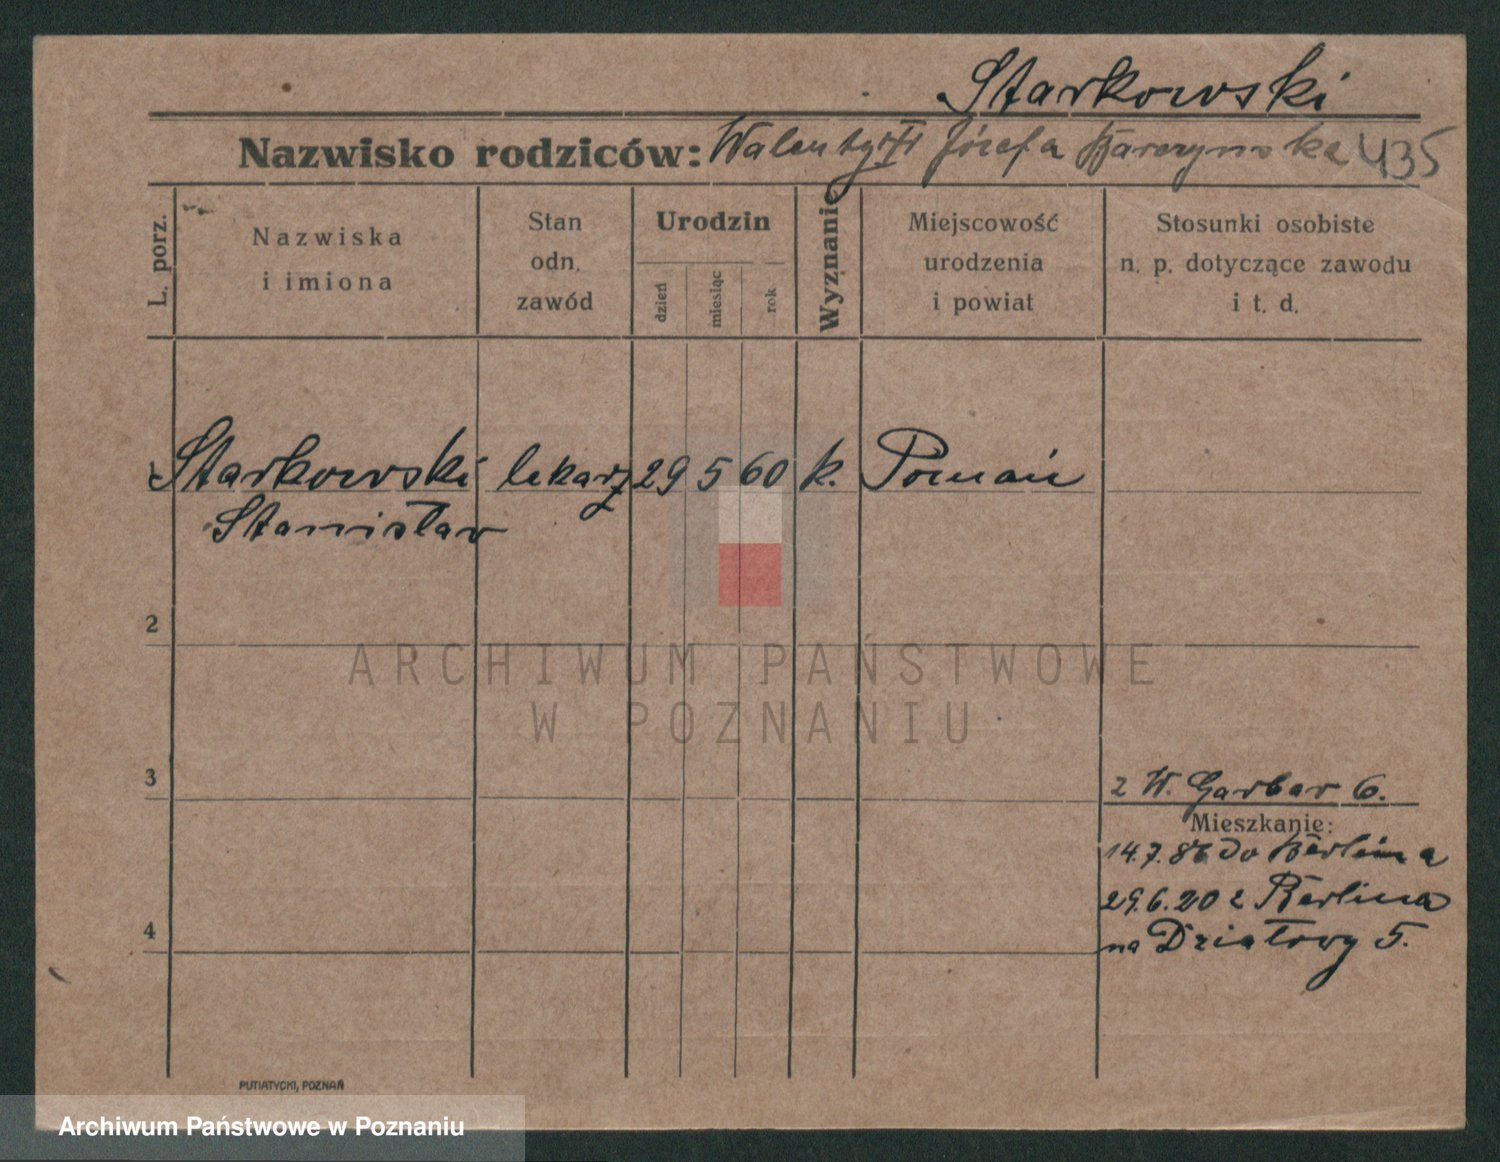 Starkowski
Nazwisko rodziców: Walenty Józefa 435
L. porz.
Nazwiska
i imiona
Stan
odn.
zawód
Urodzin
dzień
miesiąc
rok
Wyznanie
Miejscowość
urodzenia
i powiat
Stosunki osobiste
n. p. dotyczące zawodu
i t. d.
1 Starkowski lekarz 29 5 60 k. Poznań
Stanisław
2
3
4
z W. Garbar 6.
Mieszkanie:
14.7.86 do Berlina
29.6.20 z Berlina
na Działowy 5.
PUTIATYCKI, POZNAŃ
ARCHIWUM PAŃSTWOWE
W POZNANIU
Archiwum Państwowe w Poznaniu